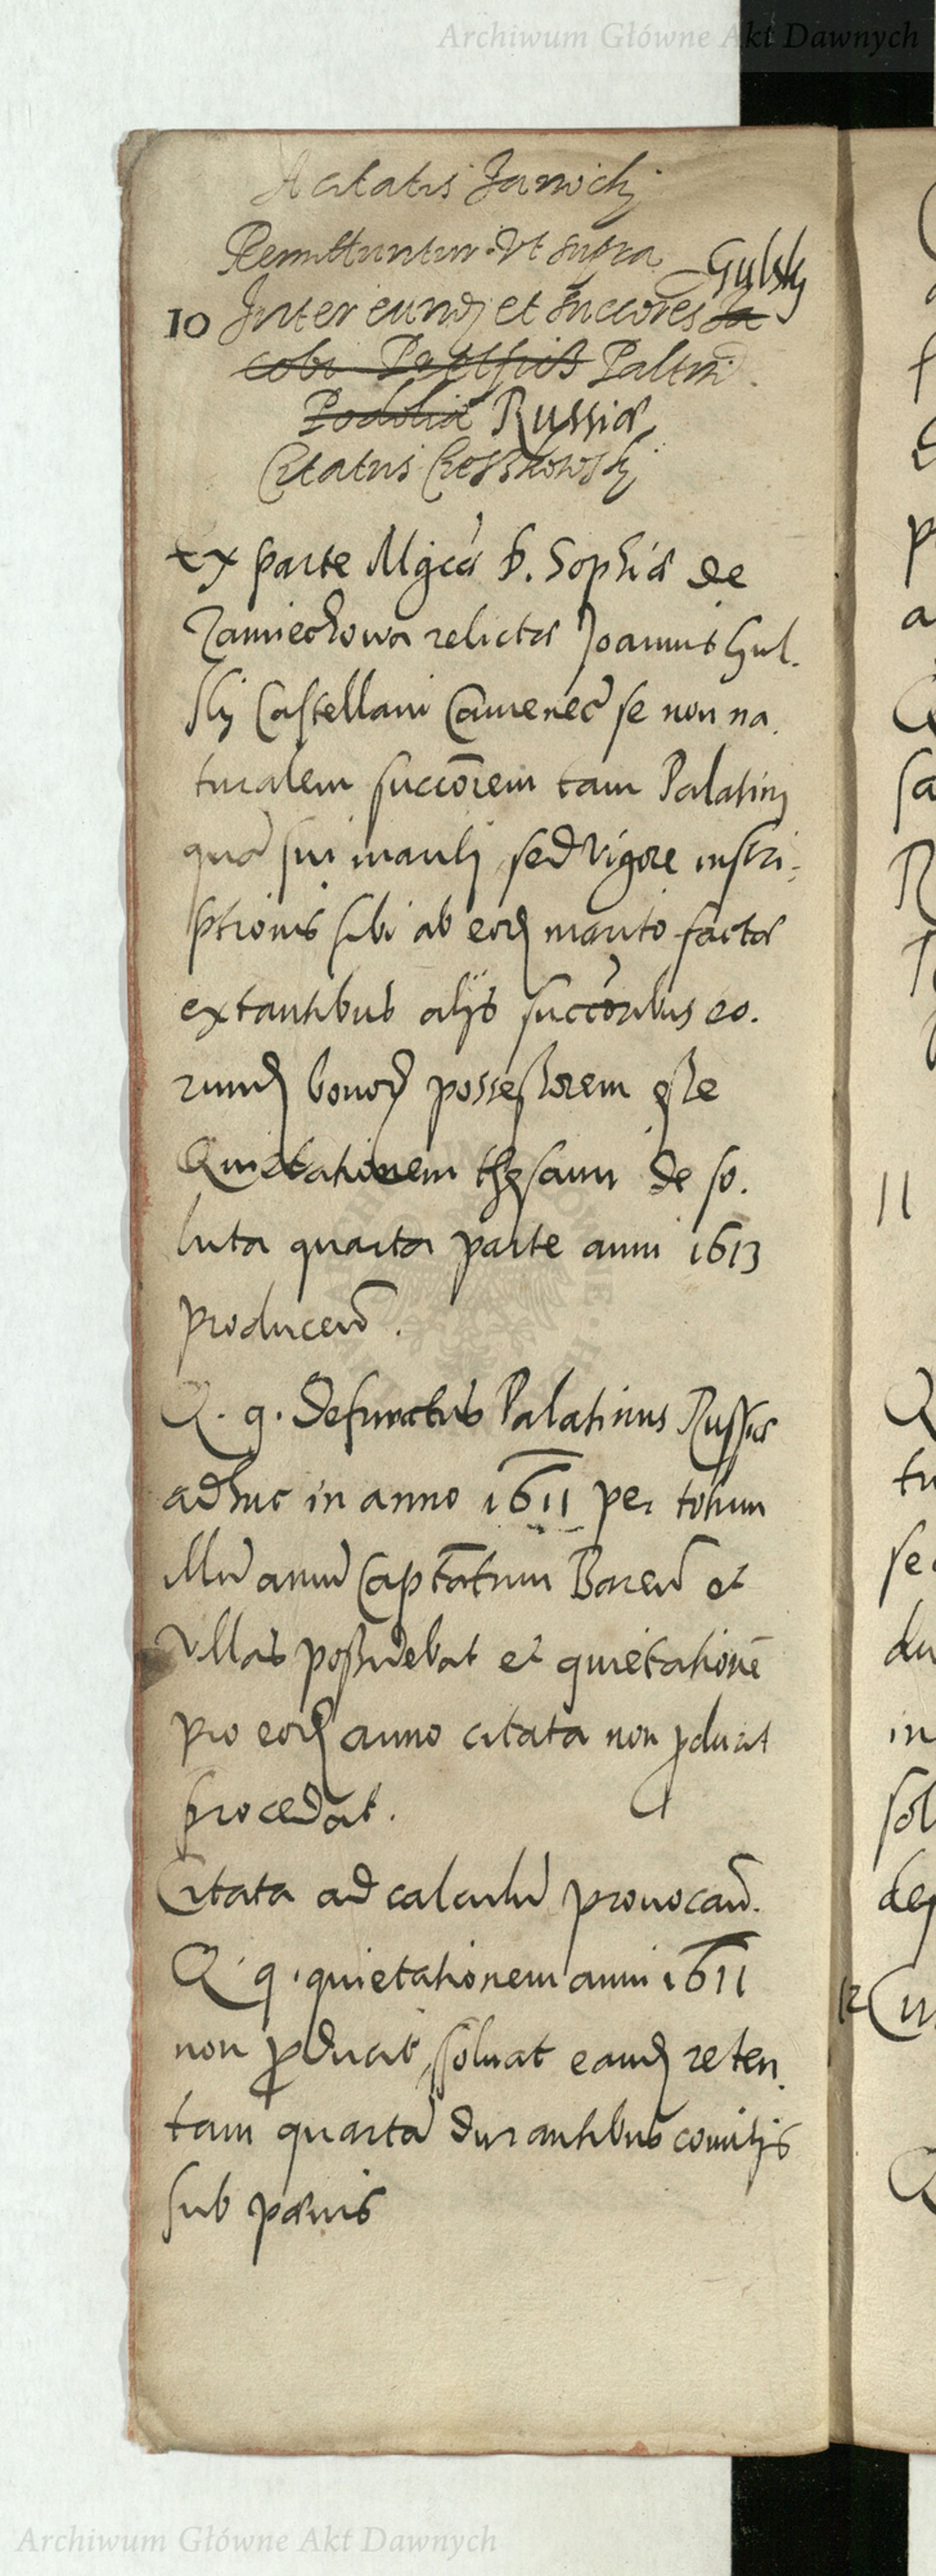 Archiwum Główne Akt Dawnych
A citatis Janicki
Remittuntur Ut supra Gulsky
10 Inter eund et succores Ja
cobi Palti
Podoliæ Russiæ
Citatus
Ex parte Mgcæ D. Sophiæ de
Zamiechowa relictæ Joannis Gul.
sky Castellani Camenec se non na.
turalem succorem tam Palatini
qua sui mariti, sed vigore inscri:
ptionis sibi ab eod marito factæ
extantibus alijs succoribus eo.
rund bonor possessorem esse
Quietationem thesauri de so.
luta quarta parte anni 1613
producen.
Q. q. Defunctus Palatinus Russiæ
adhuc in anno 1611 per totum
illu annu Captatum Baren et
villas possidebat et quietatione
pro eod anno citata non pducit
procedat.
Citata ad calculu prouocau.
Q. q. quietationem anni 1611
non pducit, soluat eand reten.
tam quarta durantibus comitijs
sub pœnis
11
12
Archiwum Główne Akt Dawnych